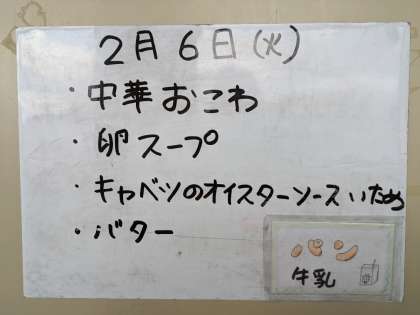 2月6日(火)
・中華おこわ
・卵スープ
・キャベツのオイスターソースいため
・バター
パン
牛乳